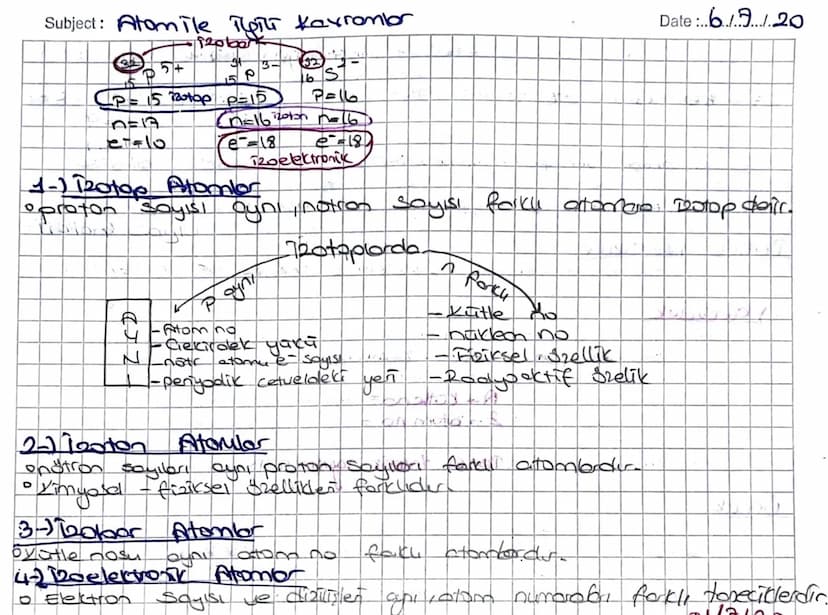 Subject : Atom ile ilgili Kavramlar Date :..6./.7../.20
izobar
32 15 P 5+ 31 15 P 3- 32 16 S 2-
P=15 izotop P=15 P=16
n=17 n=16 izoton n=16
e-=10 e-=18 e-=18
izoelektronik
1-) İzotop Atomlar
proton sayısı aynı, nötron sayısı farklı atomlara izotop denir.
İzotoplarda
P aynı n farklı
AYNI
- Atom no - Kütle no
- Çekirdek yükü - nükleon no
- nötr atomu e- sayısı - Fiziksel özellik
- periyodik cetveldeki yeri - Radyoaktif özelik
2-) İzoton Atomlar
nötron sayıları aynı proton sayıları farklı atomlardır.
Kimyasal - fiziksel özellikleri farklıdır.
3-) İzobar Atomlar
Kütle nosu aynı atom no farklı atomlardır.
4-) İzoelektronik Atomlar
Elektron sayısı ve dizilişleri aynı, atom numarası farklı taneciklerdir